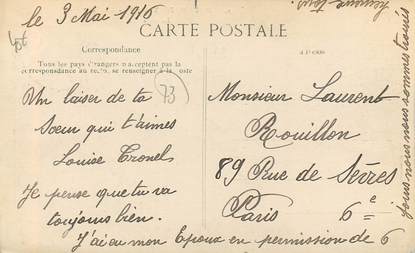 le 3 Mai 1916
CARTE POSTALE
Correspondance
Tous les pays étrangers n'acceptent pas la
correspondance au recto, se renseigner à la poste
73
Un baiser de ta
Sœur qui t'aimes
Louise Tronel
Je pense que tu va
toujours bien.
J'ai eu mon Epoux en permission de 6
Monsieur Laurent
Rouillon
89 Rue de Sèvres
Paris 6e
nous nous sommes trouvés